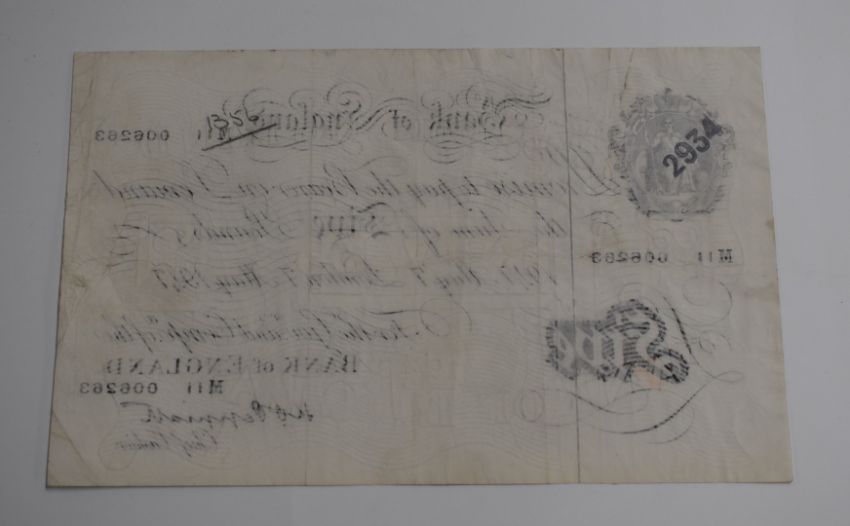 Bank of England
M11 006263
2934
Promise to pay the Bearer on Demand
the Sum of Five Pounds
M11 006263
1947 May 7 London 7 May 1947
For the Gov.r and Comp.a of the
BANK OF ENGLAND
Five
M11 006263
Chief Cashier